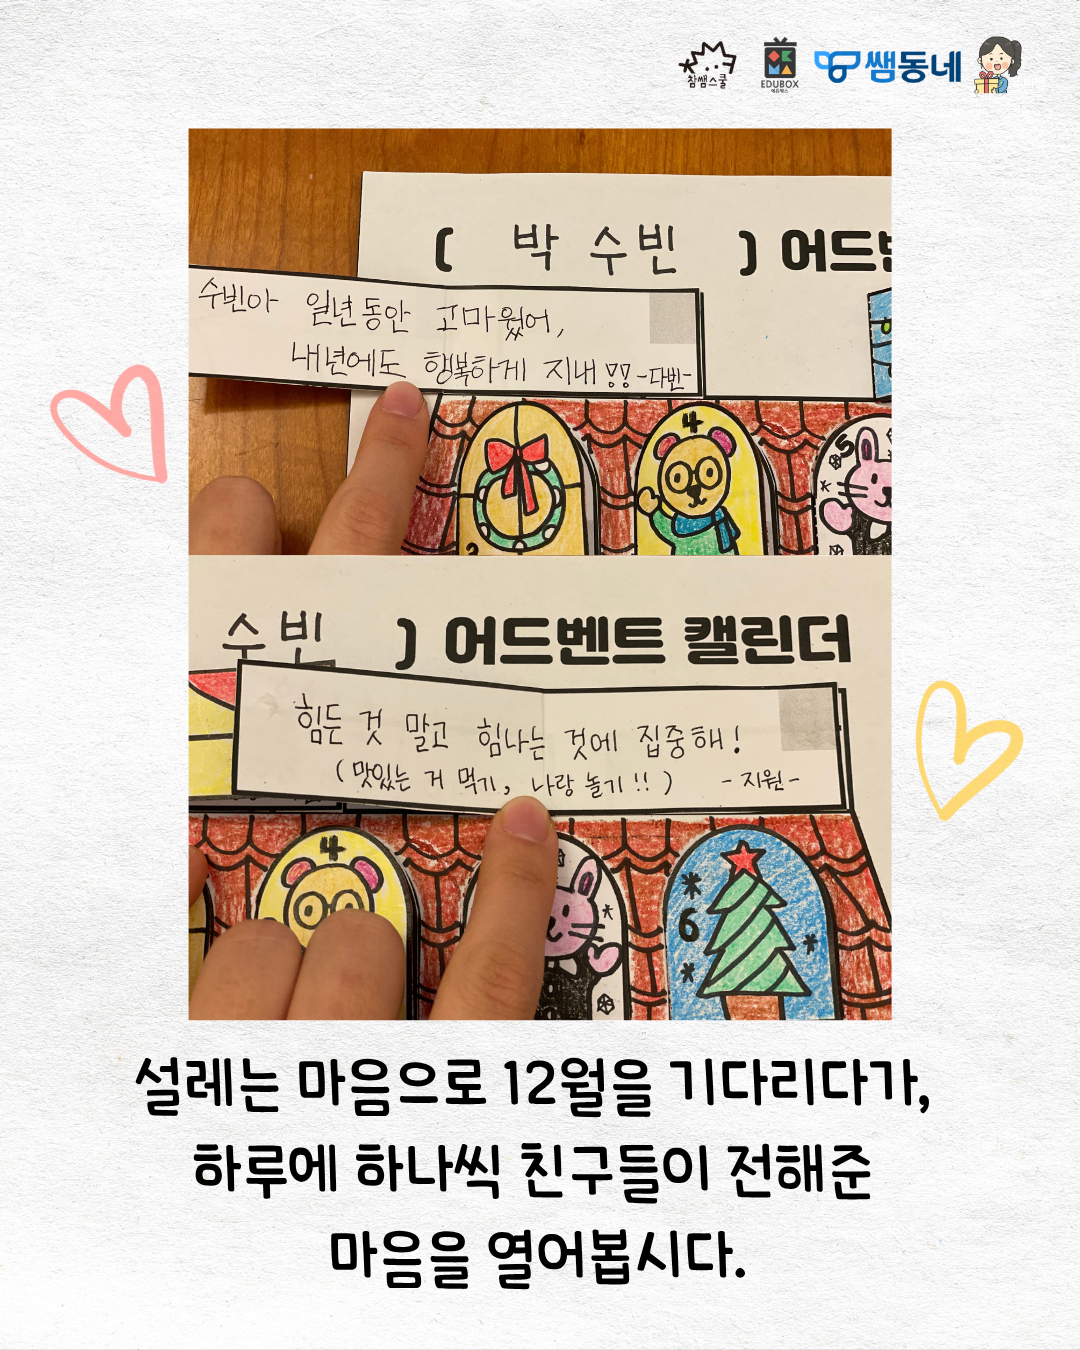 참쌤스쿨
EDUBOX
에듀박스
쌤동네
( 박 수빈 ) 어드벤
수빈아 일년동안 고마웠어,
내년에도 행복하게 지내!! -다빈-
4
5
수빈 ) 어드벤트 캘린더
힘든 것 말고 힘나는 것에 집중해!
(맛있는 거 먹기, 나랑 놀기!!) -지원-
4
6
설레는 마음으로 12월을 기다리다가,
하루에 하나씩 친구들이 전해준
마음을 열어봅시다.